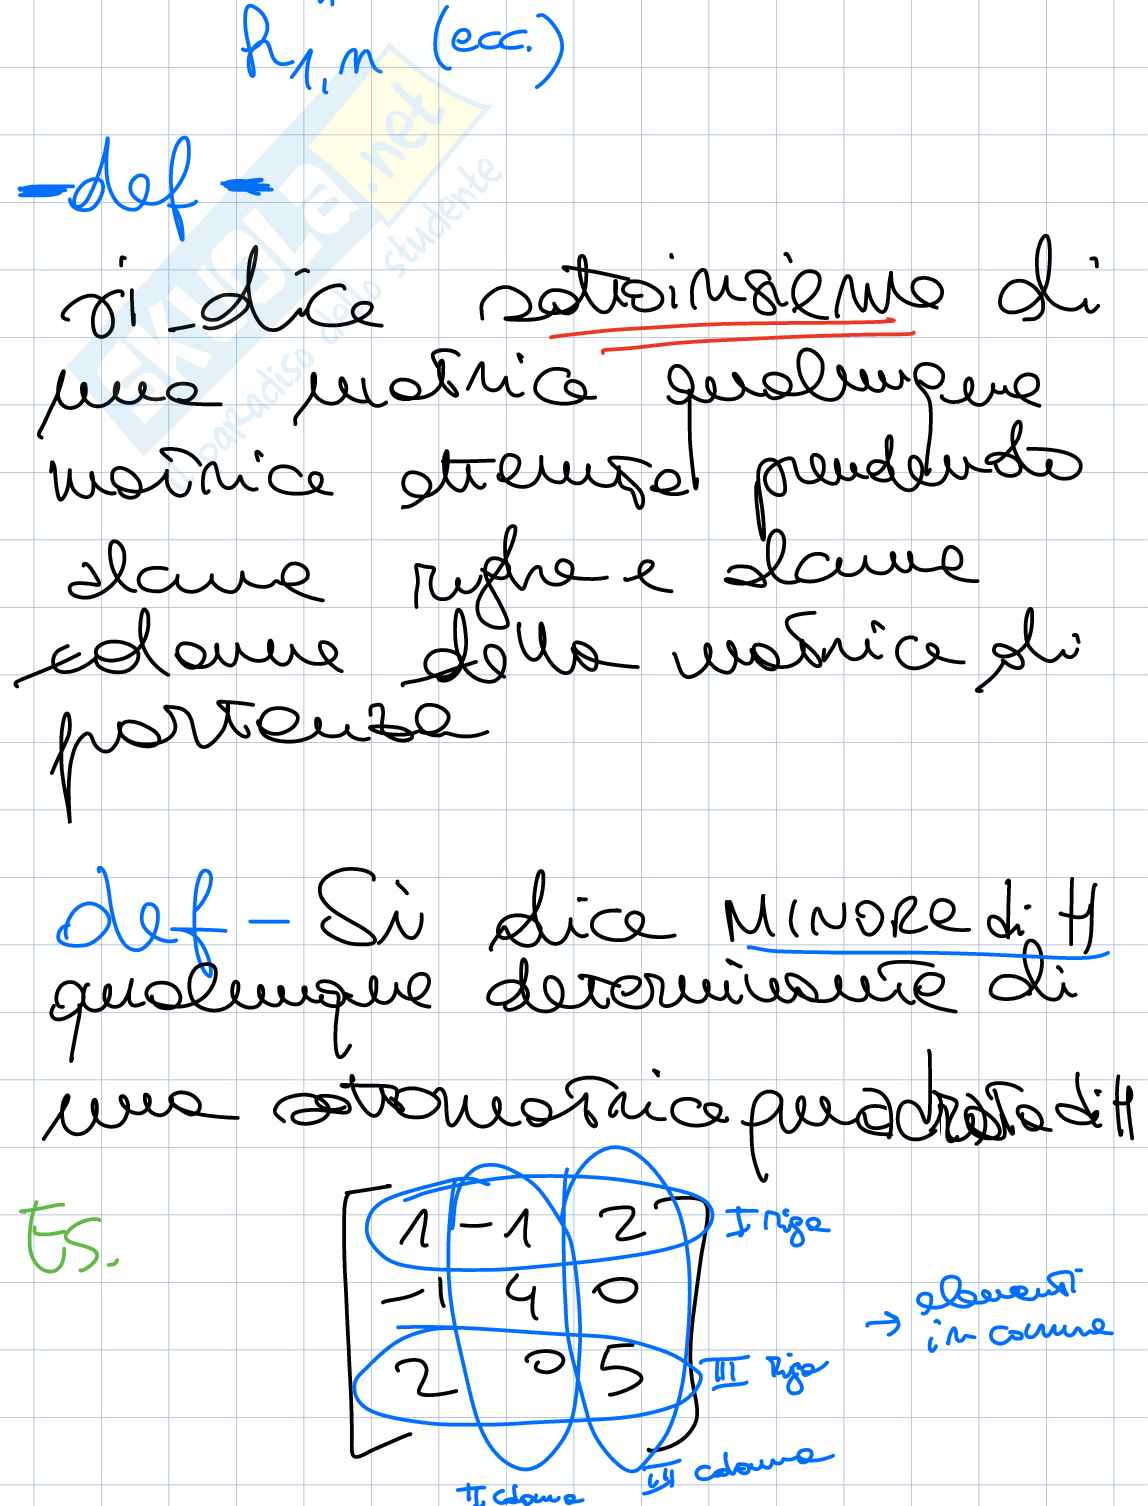 R1,n (ecc.)
- def -
si dice sottoinsieme di
una matrice qualunque
matrice ottenuta prendendo
alcune righe e alcune
colonne della matrice di
partenza
def - Si dice MINORE di H
qualunque determinante di
una sottomatrice quadrata di H
Es.
1 -1 2 I riga
-1 4 0
→ elementi
in comune
2 0 5 III Riga
III colonna
II colonna
SKUOLA.net
il paradiso dello studente